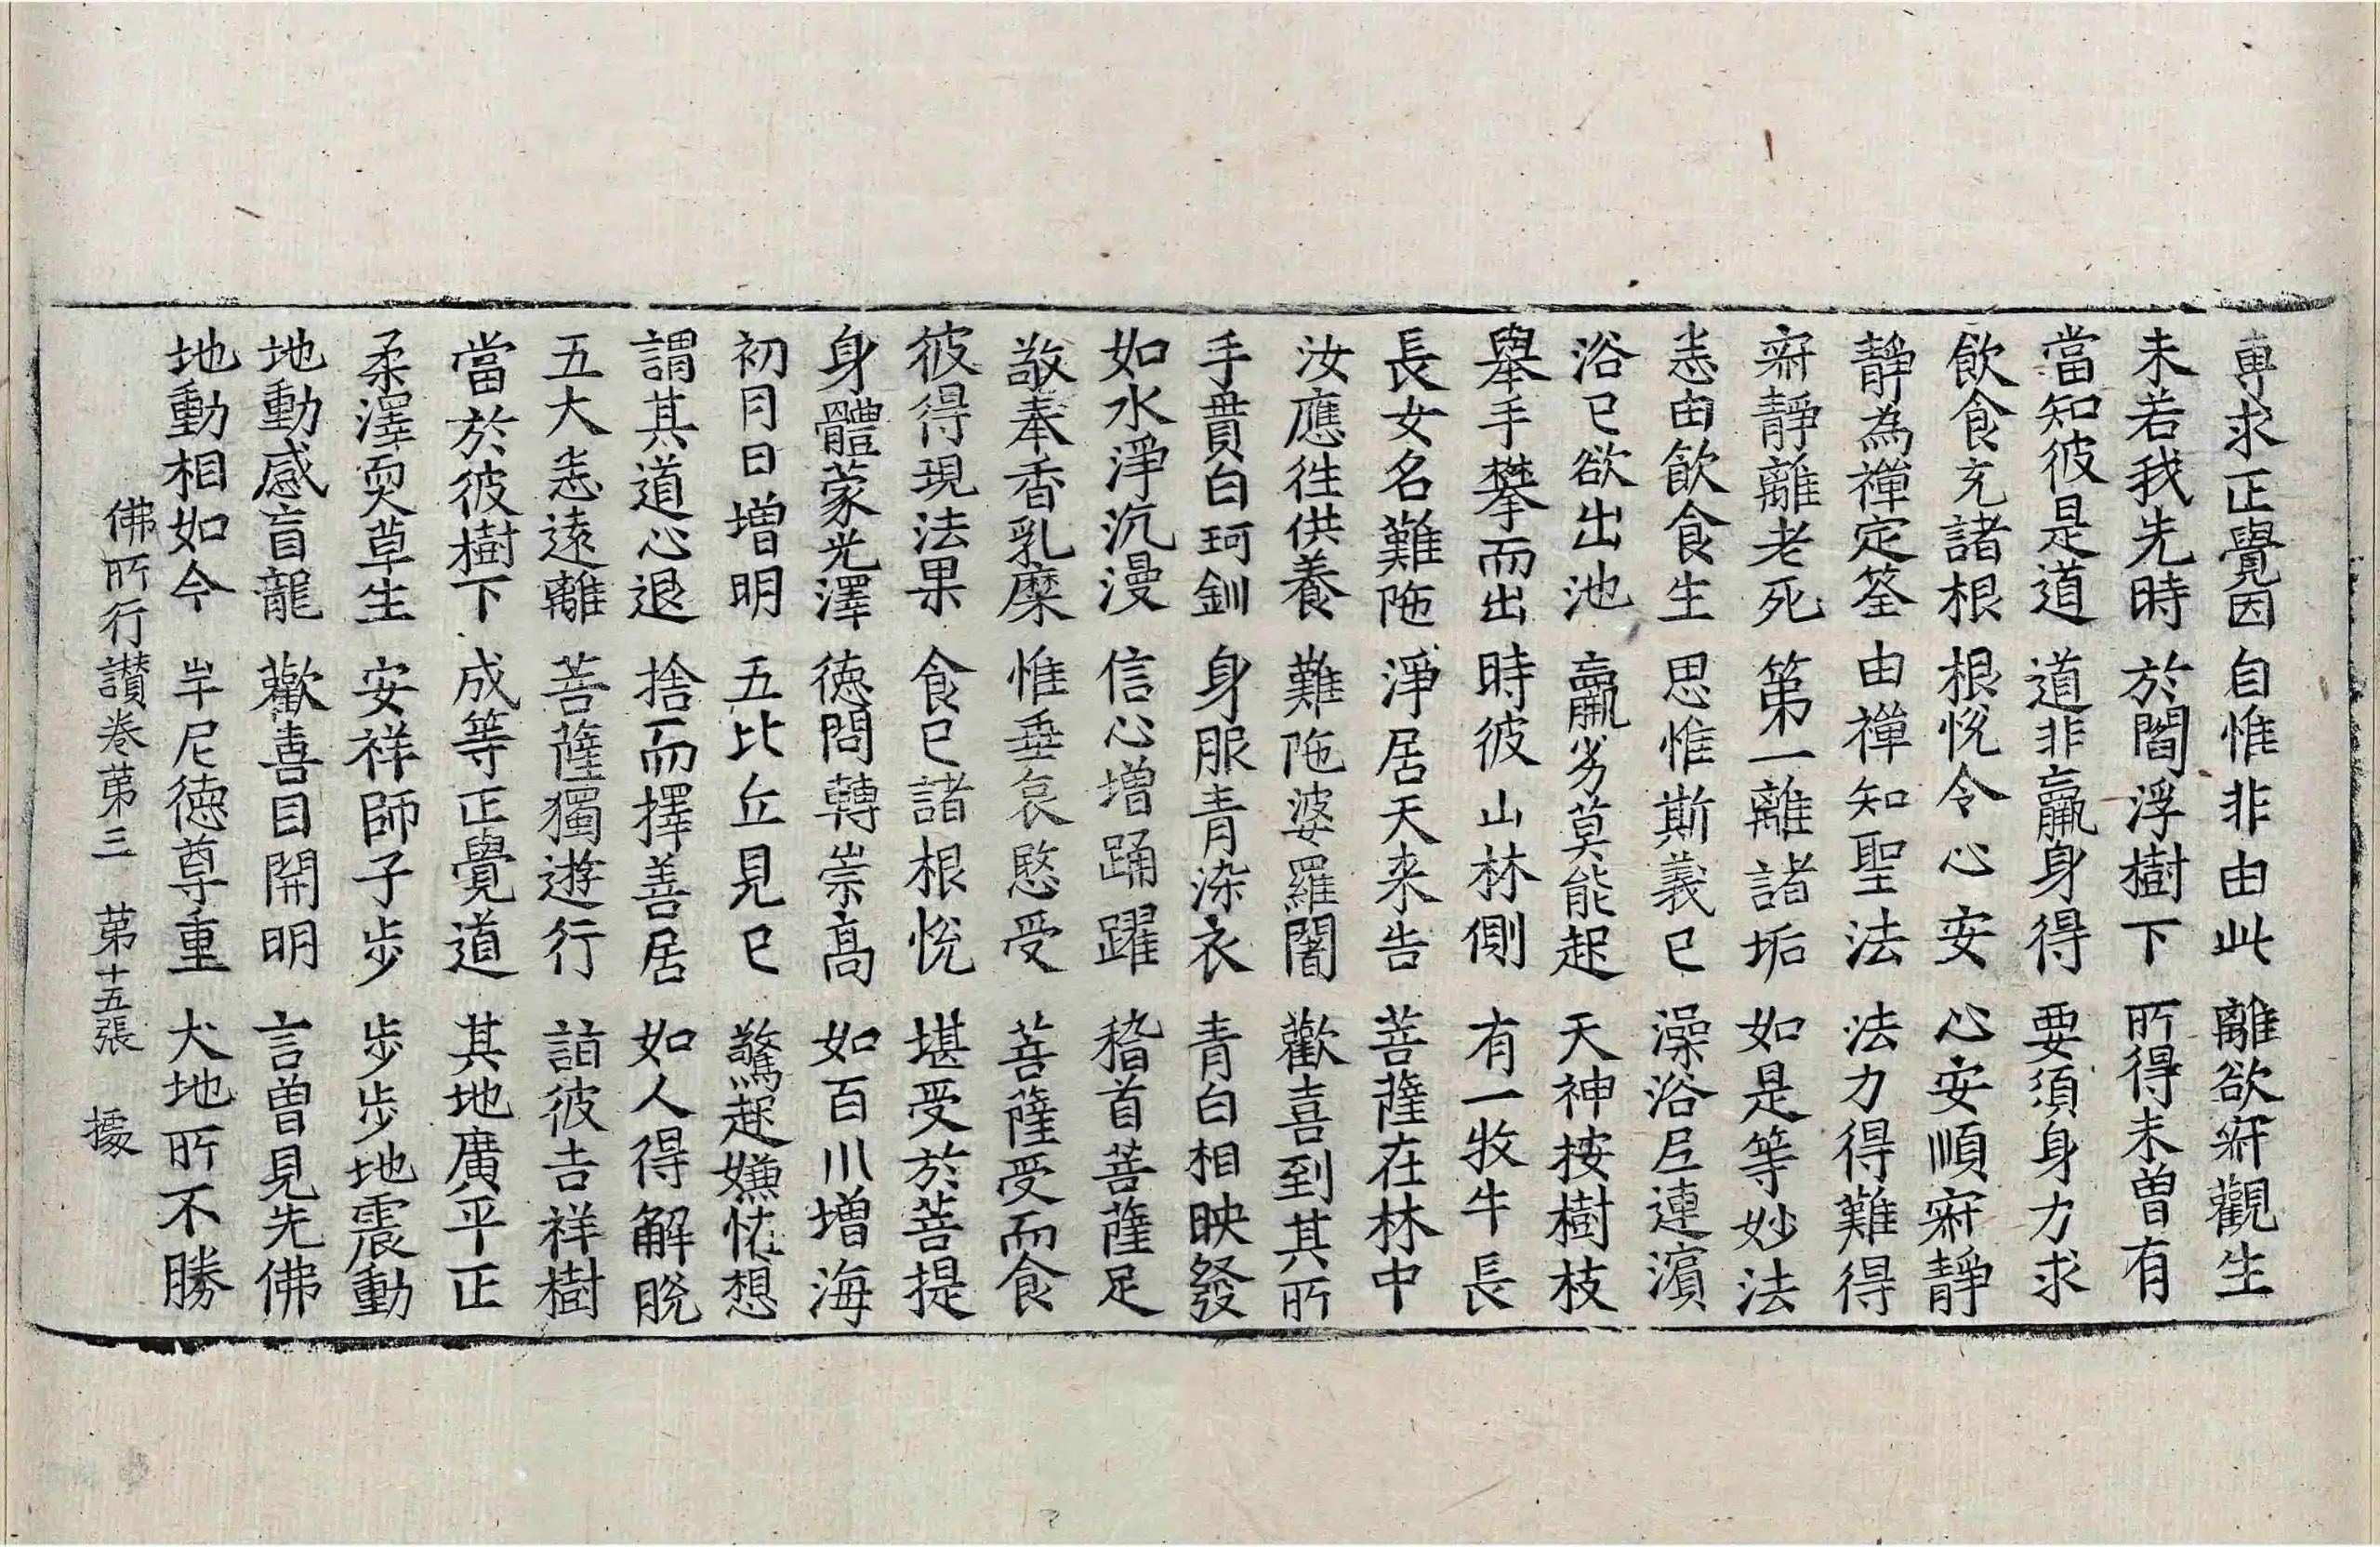 專求正覺因 自惟非由此 離欲𡧯觀生
未若我先時 於閻浮樹下 所得未曾有
當知彼是道 道非羸身得 要須身力求
飲食充諸根 根恱令心安 心安順𡧯靜
靜為禪定筌 由禪知聖法 法力得難得
𡧯靜離老死 第一離諸垢 如是等妙法
悉由飲食生 思惟斯義已 澡浴𡰱連濵
浴已欲出池 羸劣莫能起 天神按樹枝
舉手攀而出 時彼山林側 有一牧牛長
長女名難陁 淨居天来告 菩薩在林中
汝應徃供養 難陁婆羅闍 歡喜到其所
手貫白珂釧 身服青染衣 青白相映發
如水淨沉漫 信心增踊躍 稽首菩薩足
敬奉香乳糜 惟垂哀愍受 菩薩受而食
彼得現法果 食已諸根恱 堪受於菩提
身體蒙光澤 徳問轉崇高 如百川增海
初月日增明 五比丘見已 驚起嫌恠想
謂其道心退 捨而擇善居 如人得解脫
五大悉遠離 菩薩獨遊行 詣彼吉祥樹
當於彼樹下 成等正覺道 其地廣平正
柔澤耎草生 安祥師子步 步步地震動
地動感盲龍 歡喜目開明 言曽見先佛
地動相如今 牟尼徳尊重 大地所不勝
佛所行讃卷第三 第十五張 㩀